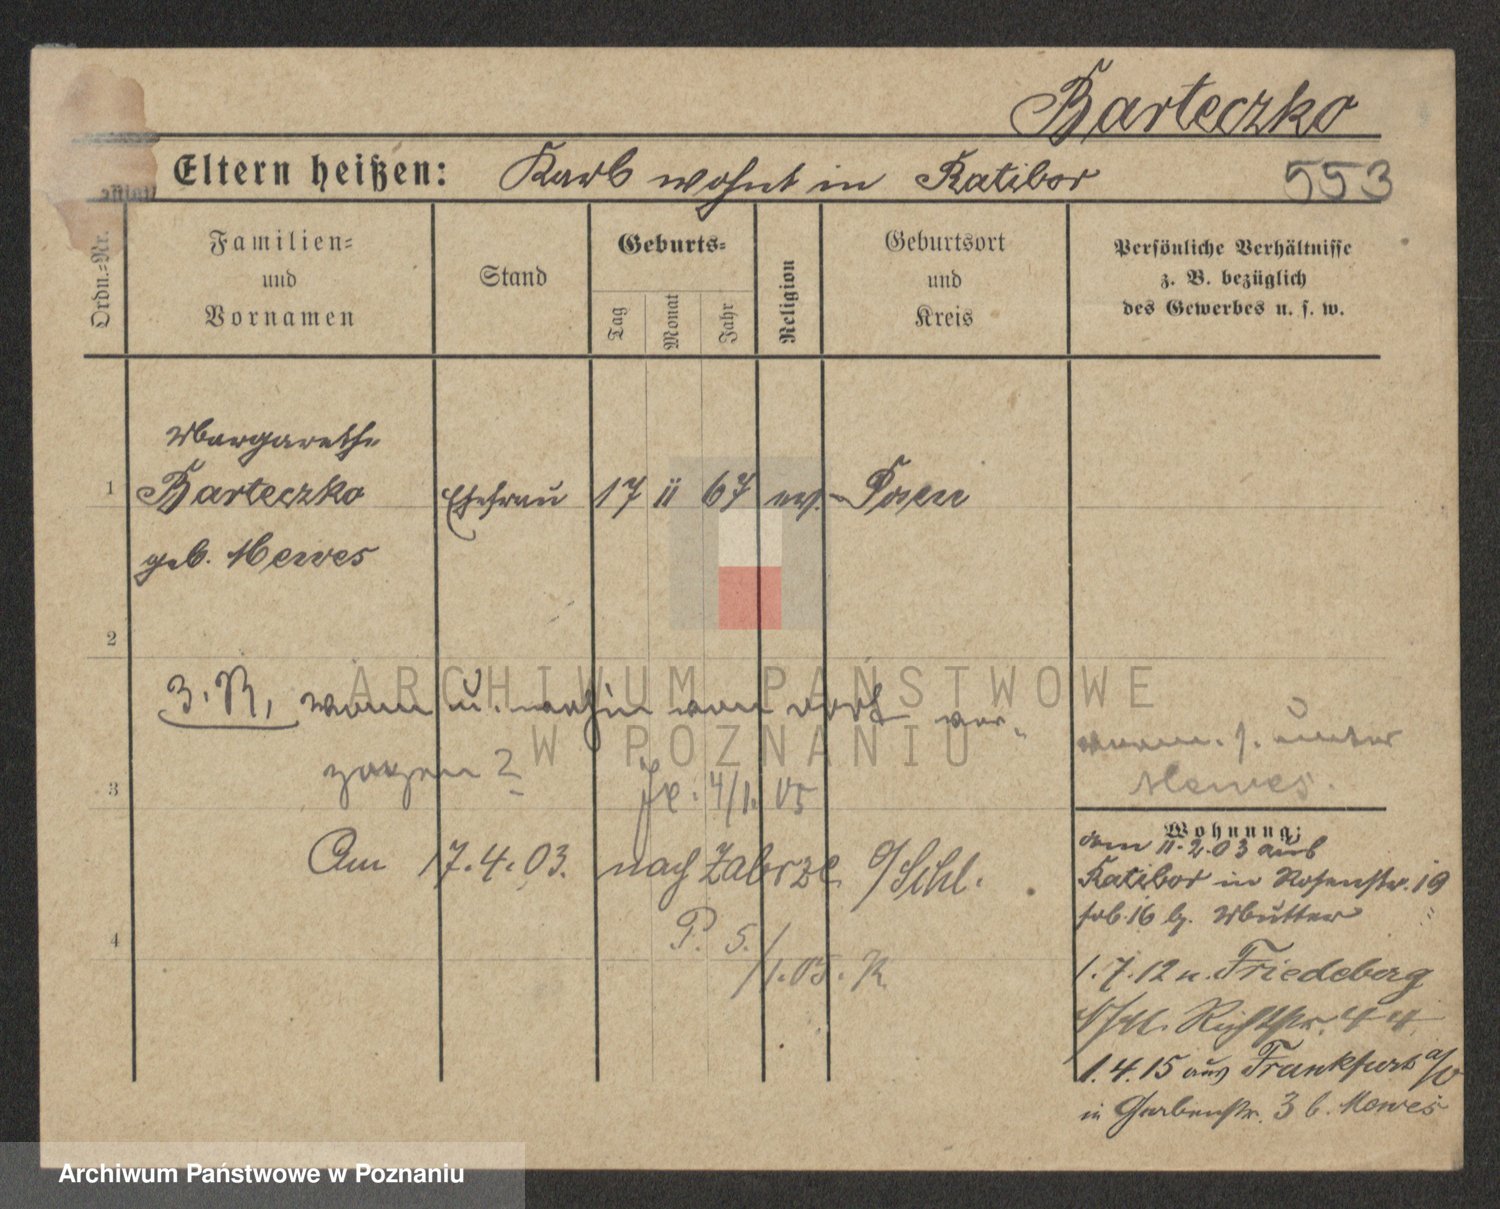 Barteczko
Eltern heißen: Karl wohnt in Ratibor 553
Ordn.=Nr.
Familien=
und
Vornamen
Stand
Geburts=
Tag
Monat
Jahr
Religion
Geburtsort
und
Kreis
Persönliche Verhältnisse
z. B. bezüglich
des Gewerbes u. s. w.
Margarethe
1 Barteczko Ehefrau 17 11 67 ev. Posen
geb. Mewes
2
3. R, wann u. wohin von dort ver-
zogen?
3
4/1. 05
Am 17.4.03. nach Zabrze O/Schl.
P. 5./1.05. K
4
unter
Mewes.
Wohnung:
am 11.2.03 aus
Ratibor in Rosenstr. 19
frb. 16 b. Mutter
1.7.12 n. Friedeberg
44
1.4.15 aus Frankfurt a/O
in Gerberstr. 3 b. Mewes
ARCHIWUM PAŃSTWOWE
W POZNANIU
Archiwum Państwowe w Poznaniu